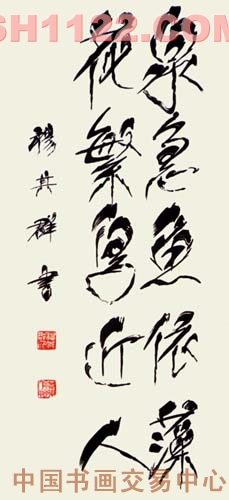 SH1122.COM
泉急魚依藻
花繁鳥近人
楊其群書
中国书画交易中心